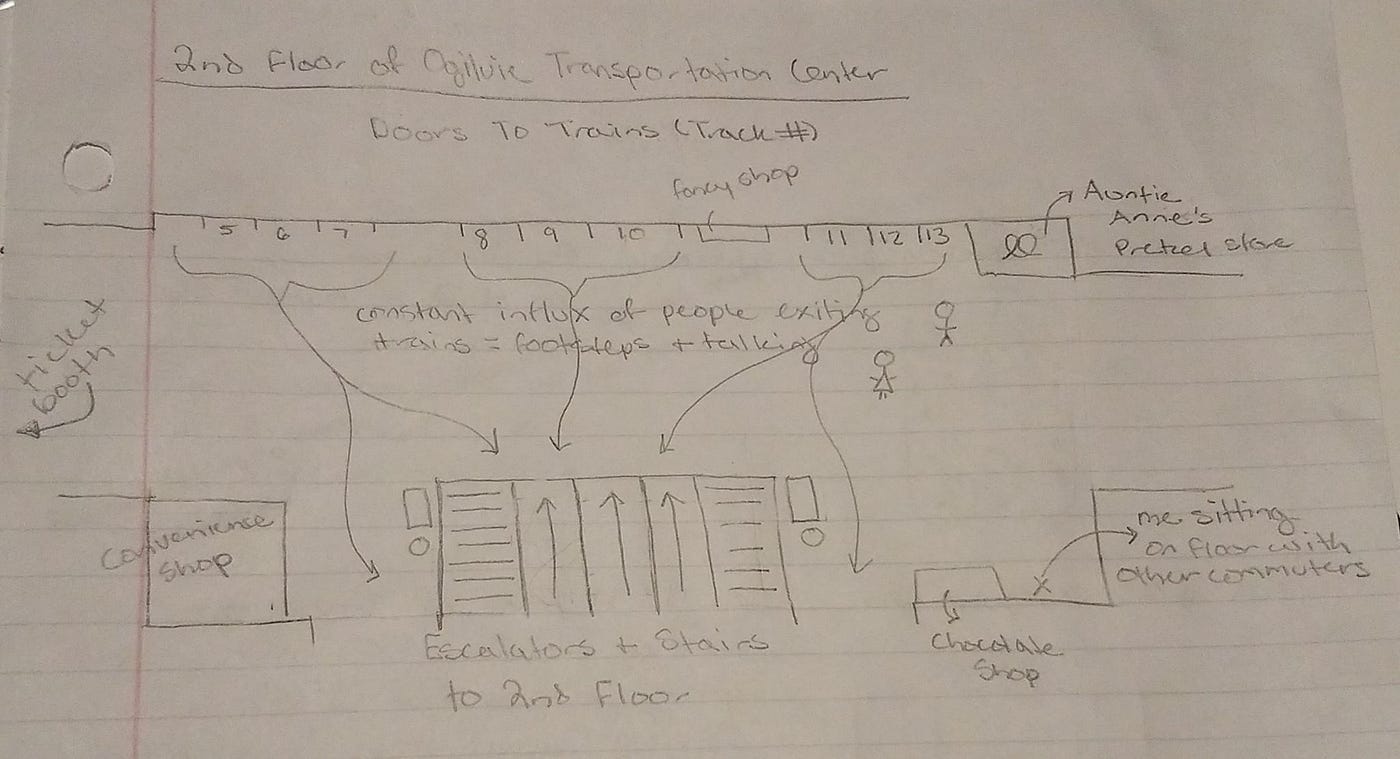 2nd Floor of Ogilvie Transportation Center
Doors To Trains (Track #)
fancy shop
Auntie
Anne's
Pretzel store
5 6 7 8 9 10 11 12 13
constant influx of people exiting
trains = footsteps + talking
ticket
booth
convenience
shop
me sitting
on floor with
other commuters
Escalators + Stairs
to 2nd Floor
Chocolate
Shop